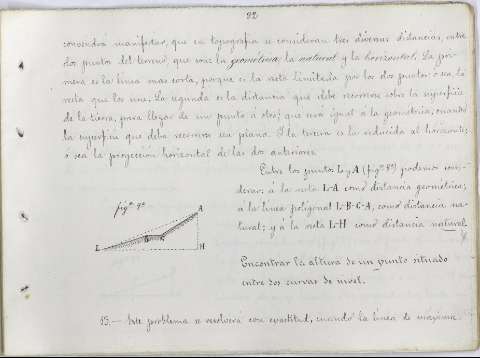 22
convendrá manifestar, que en topografía se consideran tres diversas distancias, entre
dos puntos del terreno, que son: la geométrica, la natural y la horizontal. La pri-
mera es la línea mas corta, porque es la recta limitada por los dos puntos: ó sea, la
recta que los une. La segunda es la distancia que debe recorrerse sobre la superficie
de la tierra, para llegar de un punto a otro; que será igual á la geométrica, cuando
la superficie que deba recorrerse sea plana. Y la tercera es la reducida al horizonte;
ó sea la proyección horizontal de las dos anteriores.
Entre los puntos L y A (figª 9ª) podemos consi-
derar: á la recta L-A como distancia geométrica;
á la línea poligonal L-B-C-A, como distancia na-
tural; y á la recta L-H como distancia natural.
figª 9ª
A
B
C
L
H
Encontrar la altura de un punto situado
entre dos curvas de nivel.
13.— Este problema se resolverá con exactitud, cuando la línea de máxima